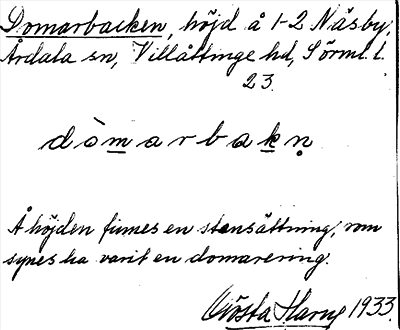 Domarbacken, höjd å 1-2 Näsby,
Årdala sn, Villåttinge hd, Sörml. l.
23.
dòmarbakn̥
Å höjden finnes en stensättning, som
synes ha varit en domarering.
Gösta 1933.